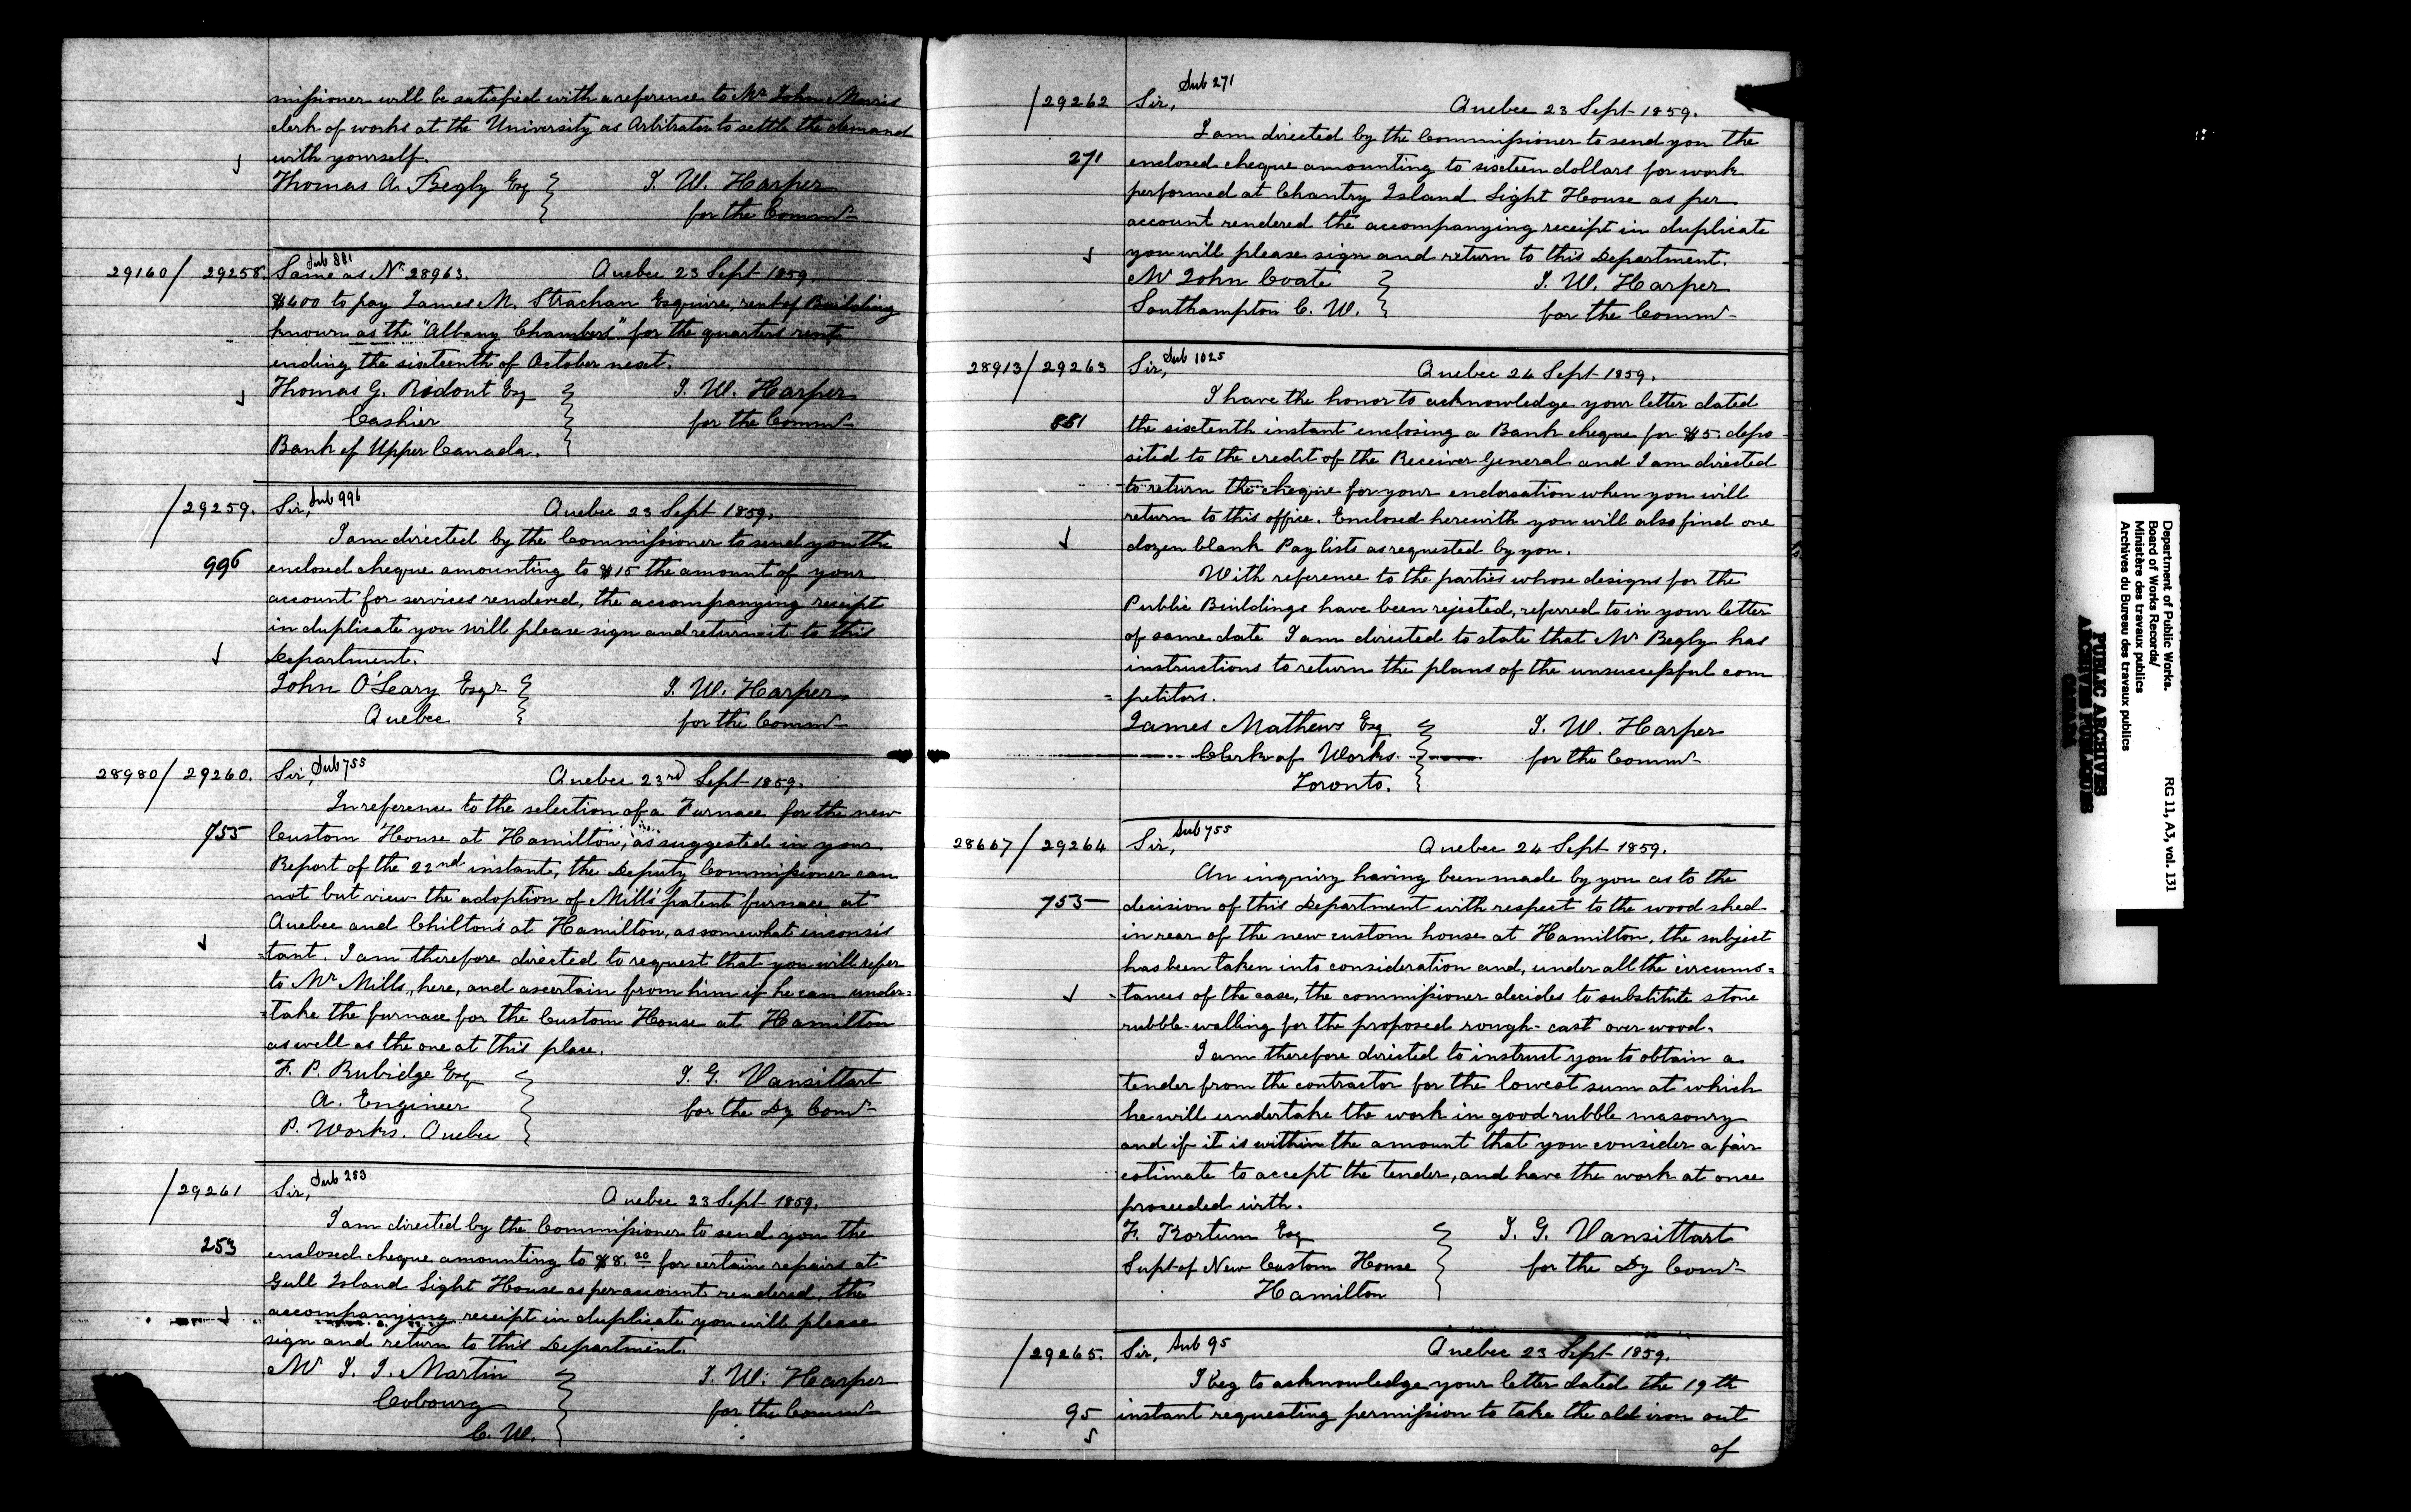 missioner will be satisfied with a reference to Mr John Morris
clerk of works at the University as Arbitrator to settle the demand
with yourself.
Thomas A. Begly Esq J. W. Harper
for the Commr
Sub 881
29160/29258. Same as No 28963. Quebec 23 Sept 1859
$400 to pay James M. Strachan Esquire, rent of Building
known as the "Albany Chambers" for the quarters rent
ending the sixteenth of October next.
Thomas G. Ridout Esq J. W. Harper
Cashier for the Commr
Bank of Upper Canada.
/29259. Sir, Sub 996 Quebec 23 Sept 1859.
I am directed by the Commissioner to send you the
996 enclosed cheque amounting to $15 the amount of your
account for services rendered, the accompanying receipt
in duplicate you will please sign and return it to this
Department.
John O'Leary Esqr J. W. Harper
Quebec for the Commr
28980/29260. Sir, Sub 755 Quebec 23rd Sept 1859.
In reference to the selection of a Furnace for the new
755 Custom House at Hamilton, as suggested in your
Report of the 22nd instant, the Deputy Commissioner can
not but view the adoption of Mill's patent furnace at
Quebec and Chilton's at Hamilton, as somewhat inconsis
=tant. I am therefore directed to request that you will refer
to Mr Mills, here, and ascertain from him if he can under=
=take the furnace for the Custom House at Hamilton
as well as the one at this place.
F. P. Rubidge Esq J. G. Vansittart
A. Engineer for the Dy Comr
P. Works. Quebec
/29261 Sir, Sub 253 Quebec 23 Sept 1859.
I am directed by the Commissioner to send you the
253 enclosed cheque amounting to $8.20 for certain repairs at
Gull Island Light House as per account rendered, the
accompanying receipt in duplicate you will please
sign and return to this Department.
Mr J. J. Martin J. W. Harper
Cobourg for the Commr
C. W.
Sub 271
/29262 Sir, Quebec 23 Sept 1859.
I am directed by the Commissioner to send you the
271 enclosed cheque amounting to sixteen dollars for work
performed at Chantry Island Light House as per
account rendered the accompanying receipt in duplicate
you will please sign and return to this Department.
Mr John Coate J. W. Harper
Southampton C. W. for the Commr
28913/29263 Sir, Sub 1025 Quebec 24 Sept 1859.
I have the honor to acknowledge your letter dated
881 the sixtenth instant enclosing a Bank cheque for $5. depo
sited to the credit of the Receiver General and I am directed
to return the cheque for your endorsation when you will
return to this office. Enclosed herewith you will also find one
dozen blank Pay lists as requested by you.
With reference to the parties whose designs for the
Public Buildings have been rejected, referred to in your letter
of same date I am directed to state that Mr Begly has
instructions to return the plans of the unsuccessful com
=petitors.
James Mathews Esq J. W. Harper
Clerk of Works. for the Commr
Toronto.
28667/29264 Sir, Sub 755 Quebec 24 Sept 1859.
An inquiry having been made by you as to the
755 decision of this Department with respect to the wood shed
in rear of the new custom house at Hamilton, the subject
has been taken into consideration and, under all the circums=
=tances of the case, the commissioner decides to substitute stone
rubble-walling for the proposed rough-cast over wood.
I am therefore directed to instruct you to obtain a
tender from the contractor for the lowest sum at which
he will undertake the work in good rubble masonry
and if it is within the amount that you consider a fair
estimate to accept the tender, and have the work at once
proceeded with.
F. Rortum Esq J. G. Vansittart
Supt of New Custom House for the Dy Comr
Hamilton
/29265. Sir, Sub 95 Quebec 23 Sept 1859.
I beg to acknowledge your letter dated the 19th
95 instant requesting permission to take the old iron out
of
Department of Public Works.
Board of Works Records/
Ministère des travaux publics
Archives du Bureau des travaux publics
RG 11, A3, vol. 131
PUBLIC ARCHIVES
ARCHIVES PUBLIQUES
CANADA